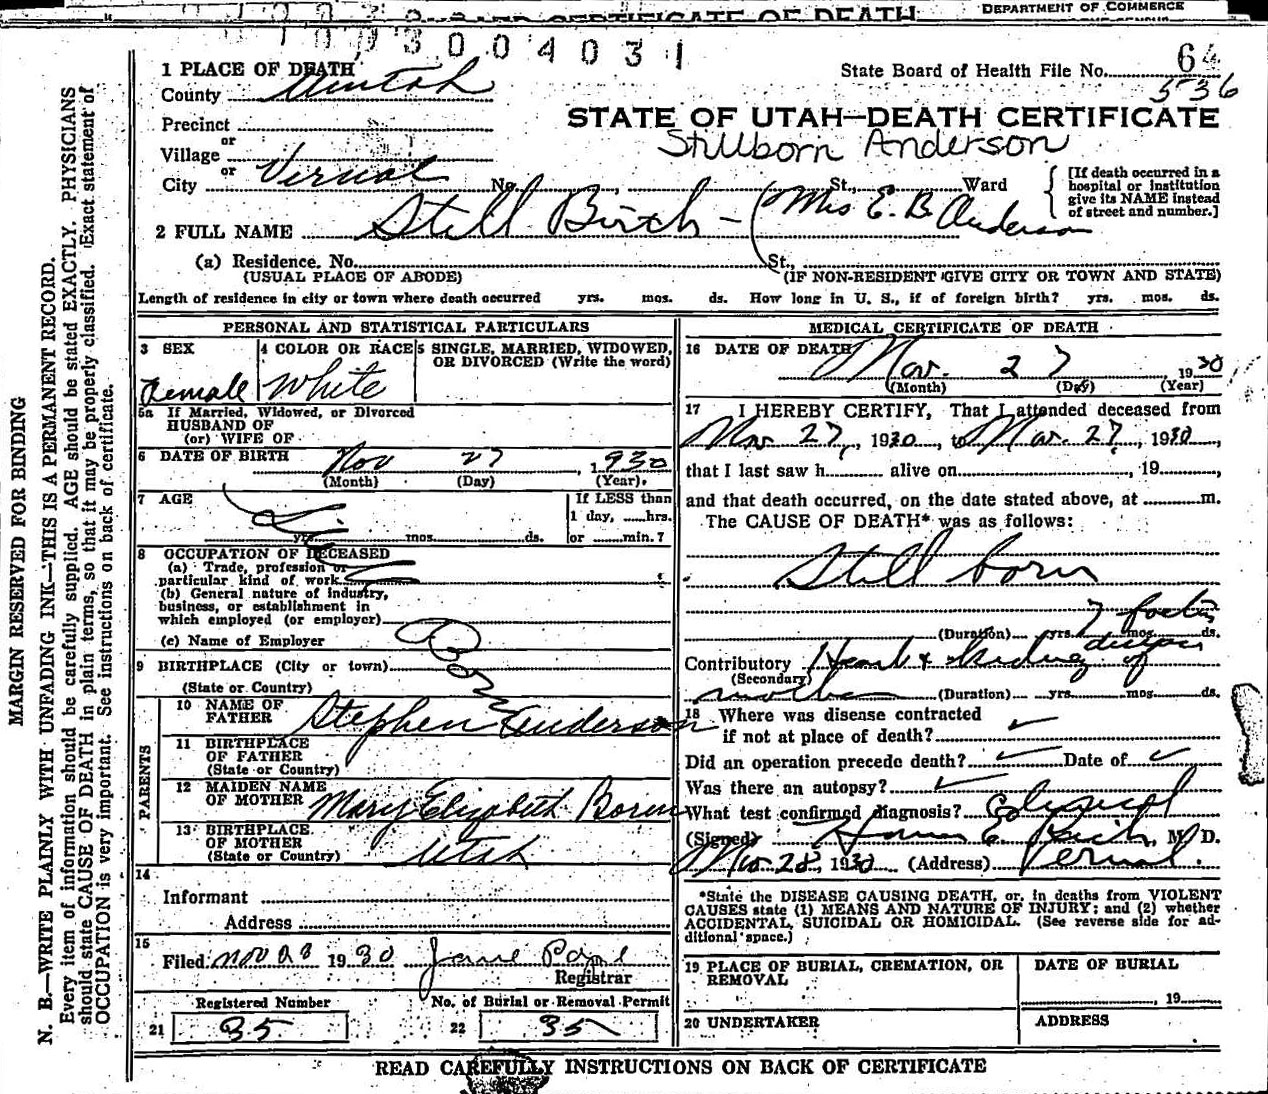 DEPARTMENT OF COMMERCE
CERTIFICATE OF DEATH
3004031
1 PLACE OF DEATH
State Board of Health File No. 64
536
County Uintah
STATE OF UTAH—DEATH CERTIFICATE
Stillborn Anderson
Precinct
or
Village
or
City Vernal No. , St., Ward
[If death occurred in a hospital or institution give its NAME instead of street and number.]
2 FULL NAME Still Birth - (Mrs E. B. Anderson
(a) Residence. No. St.,
(USUAL PLACE OF ABODE) (IF NON-RESIDENT GIVE CITY OR TOWN AND STATE)
Length of residence in city or town where death occurred yrs. mos. ds. How long in U. S., if of foreign birth? yrs. mos. ds.
PERSONAL AND STATISTICAL PARTICULARS
3 SEX
Female
4 COLOR OR RACE
White
5 SINGLE, MARRIED, WIDOWED,
OR DIVORCED (Write the word)
5a If Married, Widowed, or Divorced
HUSBAND OF
(or) WIFE OF
6 DATE OF BIRTH Nov 27, 1930
(Month) (Day) (Year)
7 AGE
yrs. mos. ds.
If LESS than
1 day, ......hrs.
or ...... min.?
8 OCCUPATION OF DECEASED
(a) Trade, profession or
particular kind of work
(b) General nature of industry,
business, or establishment in
which employed (or employer)
(c) Name of Employer
9 BIRTHPLACE (City or town)
(State or Country)
PARENTS
10 NAME OF
FATHER Stephen Anderson
11 BIRTHPLACE
OF FATHER
(State or Country)
12 MAIDEN NAME
OF MOTHER Mary Elizabeth Boren
13 BIRTHPLACE
OF MOTHER
(State or Country) Utah
14
Informant
Address
15
Filed Nov 28 1930
Registrar
Registered Number
21 35
No. of Burial or Removal Permit
22 35
MEDICAL CERTIFICATE OF DEATH
16 DATE OF DEATH
Nov. 27 1930
(Month) (Day) (Year)
17 I HEREBY CERTIFY, That I attended deceased from
Nov 27, 1930, to Nov. 27, 1930,
that I last saw h alive on , 19 ,
and that death occurred, on the date stated above, at m.
The CAUSE OF DEATH* was as follows:
Still born
7
(Duration) yrs. mos. ds.
Contributory Heart & Kidney disease of
(Secondary)
mother (Duration) yrs. mos. ds.
18 Where was disease contracted
if not at place of death? ✓
Did an operation precede death? ✓ Date of ✓
Was there an autopsy? ✓
What test confirmed diagnosis? Physical
(Signed) Homer E. Rich, M. D.
Nov 28, 1930 (Address) Vernal.
*State the DISEASE CAUSING DEATH, or, in deaths from VIOLENT
CAUSES state (1) MEANS AND NATURE OF INJURY; and (2) whether
ACCIDENTAL, SUICIDAL OR HOMICIDAL. (See reverse side for ad-
ditional space.)
19 PLACE OF BURIAL, CREMATION, OR
REMOVAL
DATE OF BURIAL
, 19
20 UNDERTAKER
ADDRESS
READ CAREFULLY INSTRUCTIONS ON BACK OF CERTIFICATE
MARGIN RESERVED FOR BINDING
N. B.—WRITE PLAINLY WITH UNFADING INK—THIS IS A PERMANENT RECORD.
Every item of information should be carefully supplied. AGE should be stated EXACTLY. PHYSICIANS
should state CAUSE OF DEATH in plain terms, so that it may be properly classified. Exact statement of
OCCUPATION is very important. See instructions on back of certificate.